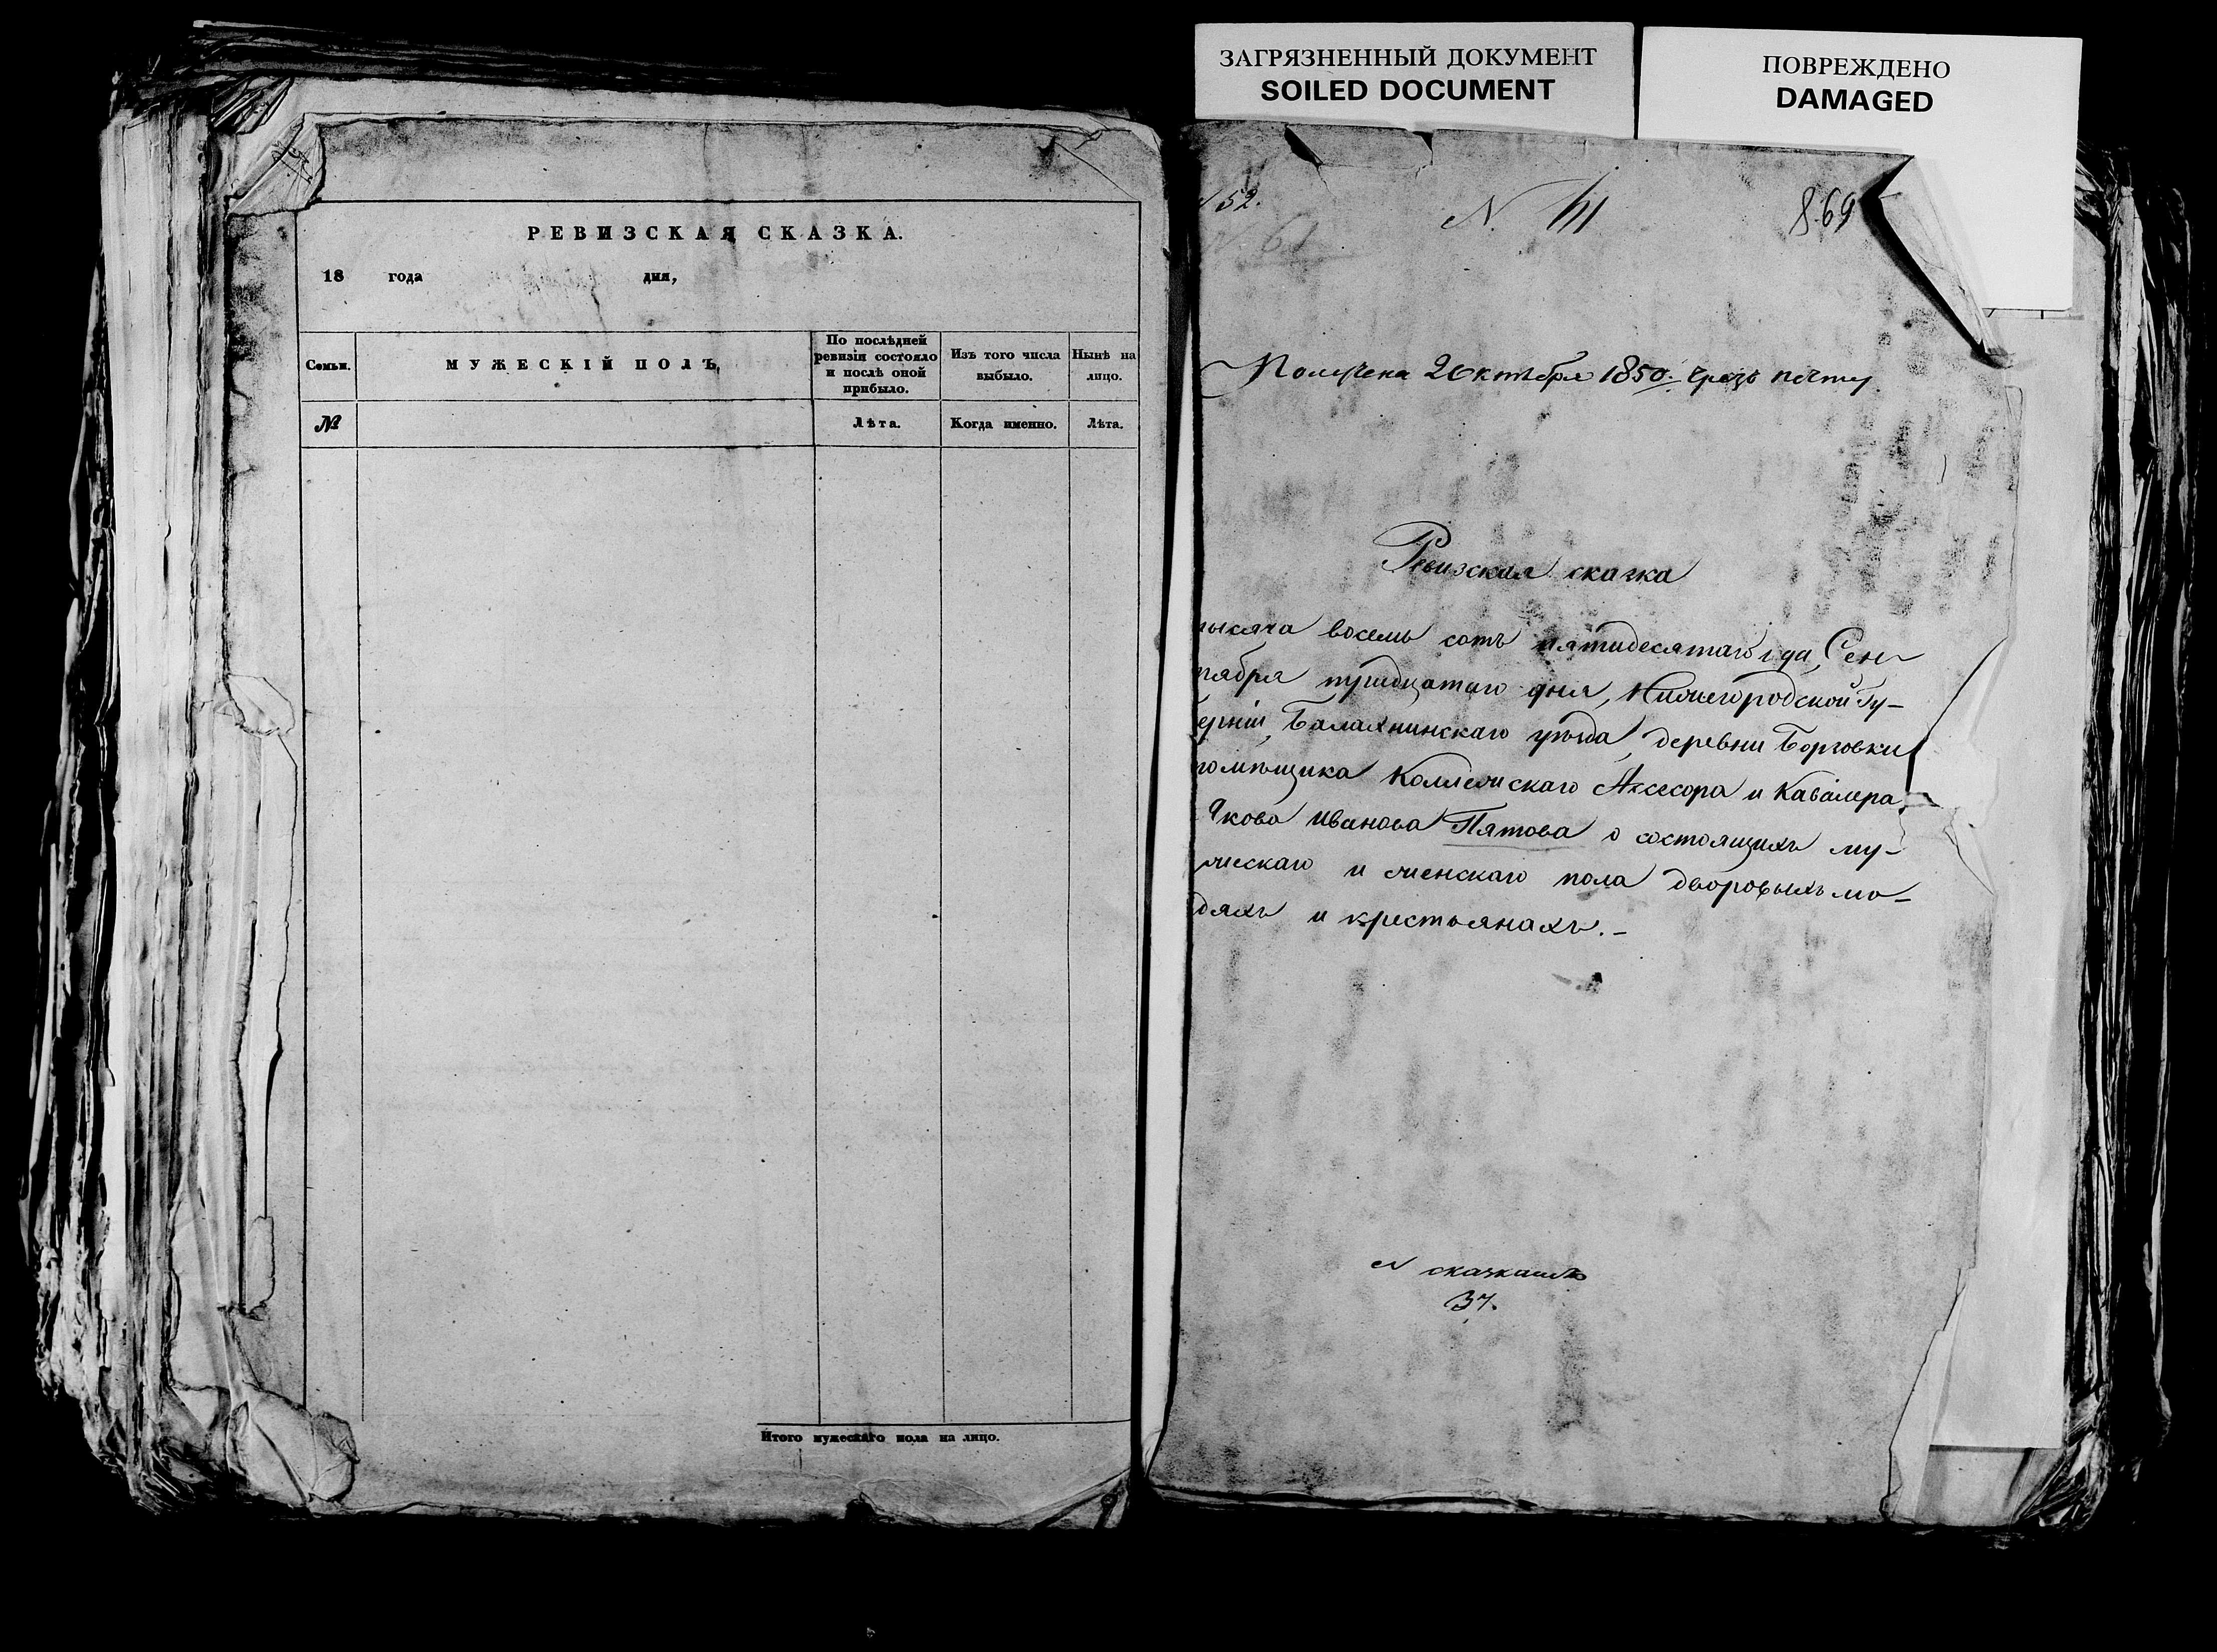 РЕВИЗСКАЯ СКАЗКА.
18 года дня,
Семьи.
МУЖЕСКІЙ ПОЛЪ,
По послѣдней
ревизіи состояло
и послѣ оной
прибыло.
Изъ того числа
выбыло.
Нынѣ на
лицо.
№
Лѣта.
Когда именно.
Лѣта.
Итого мужескаго пола на лицо.
ЗАГРЯЗНЕННЫЙ ДОКУМЕНТ
SOILED DOCUMENT
ПОВРЕЖДЕНО
DAMAGED
52.
N. 61
N.
869
Получена 2 Октября 1850. чрезъ почту
Ревизская сказка
тысяча восемь сотъ пятидесятаго года, Сен-
тября тридцатаго дня, Нижегородской Гу-
берніи, Балахнинскаго уѣзда, деревни
помѣщика Коллежскаго Ассесора и Кавалера
Якова Иванова Пятова о состоящихъ му-
жескаго и женскаго пола дворовыхъ лю-
дяхъ и крестьянахъ.-
37.